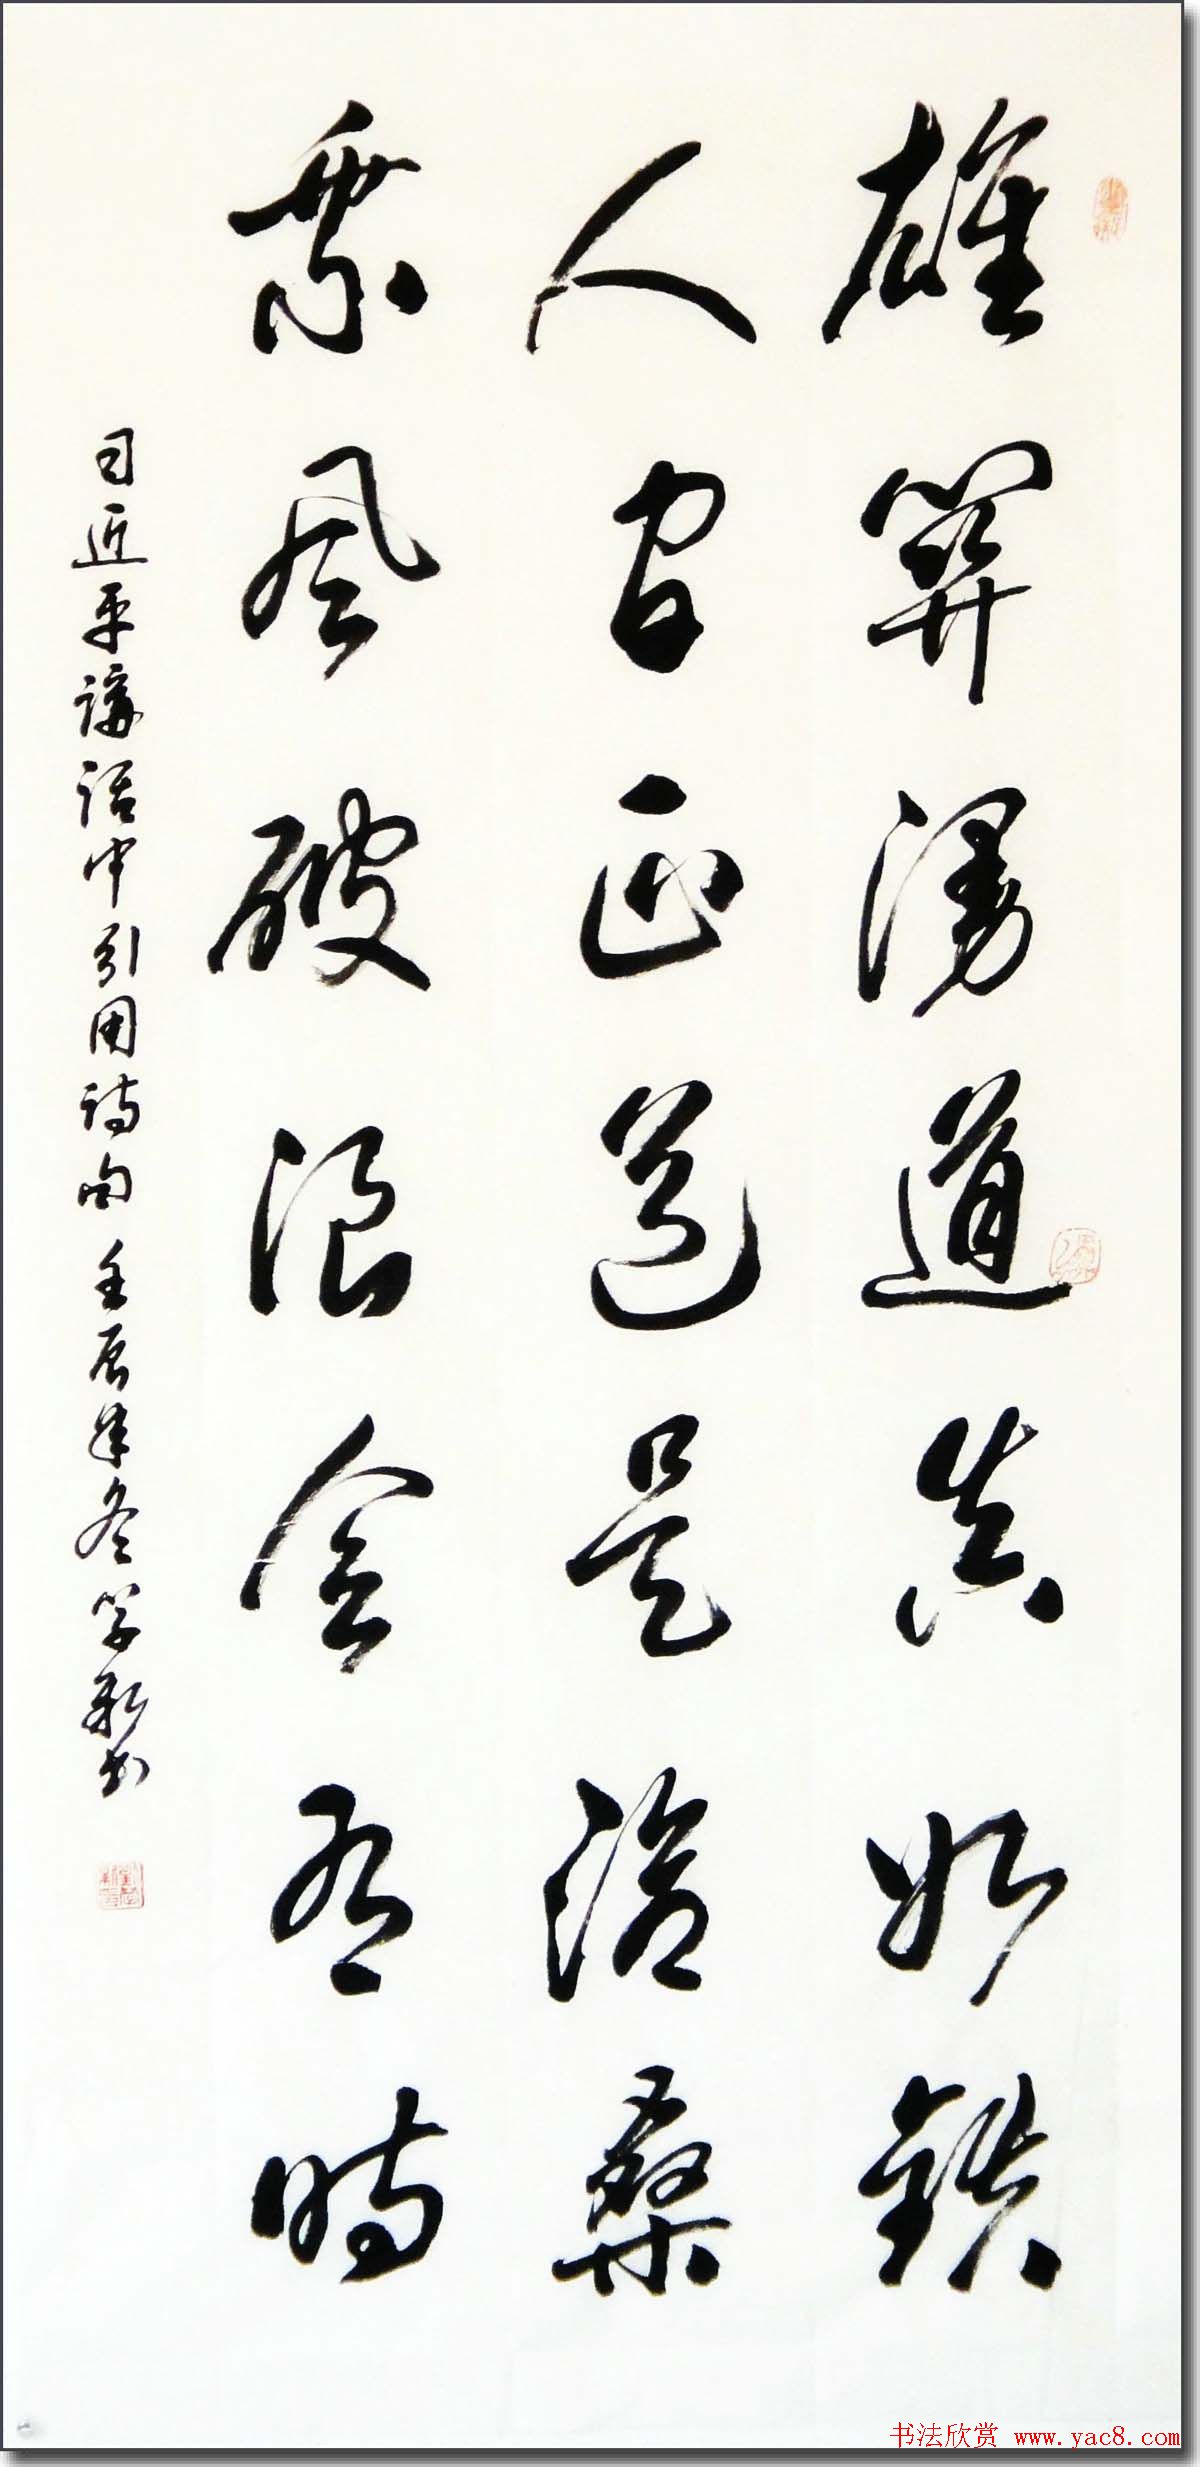 雄關漫道真如鐵
人間正道是滄桑
乘風破浪會有時
習近平講話中引用詩句 壬辰年冬學新書
书法欣赏 www.yac8.com